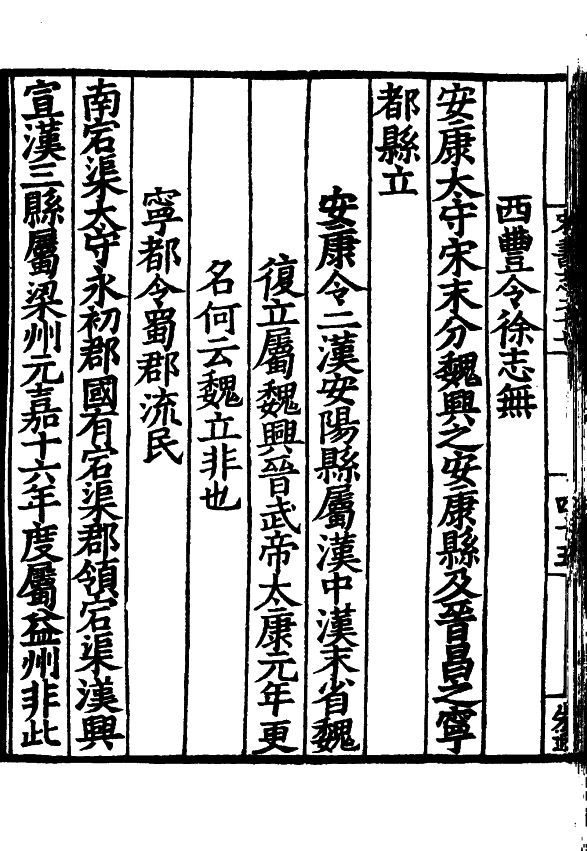 西豐令徐志無
安康太守宋末分魏興之安康縣及晉昌之寧
都縣立
安康令二漢安陽縣屬漢中漢末省魏
復立屬魏興晉武帝太康元年更
名何云魏立非也
寧都令蜀郡流民
南宕渠太守永初郡國有宕渠郡領宕渠漢興
宣漢三縣屬梁州元嘉十六年度屬益州非此